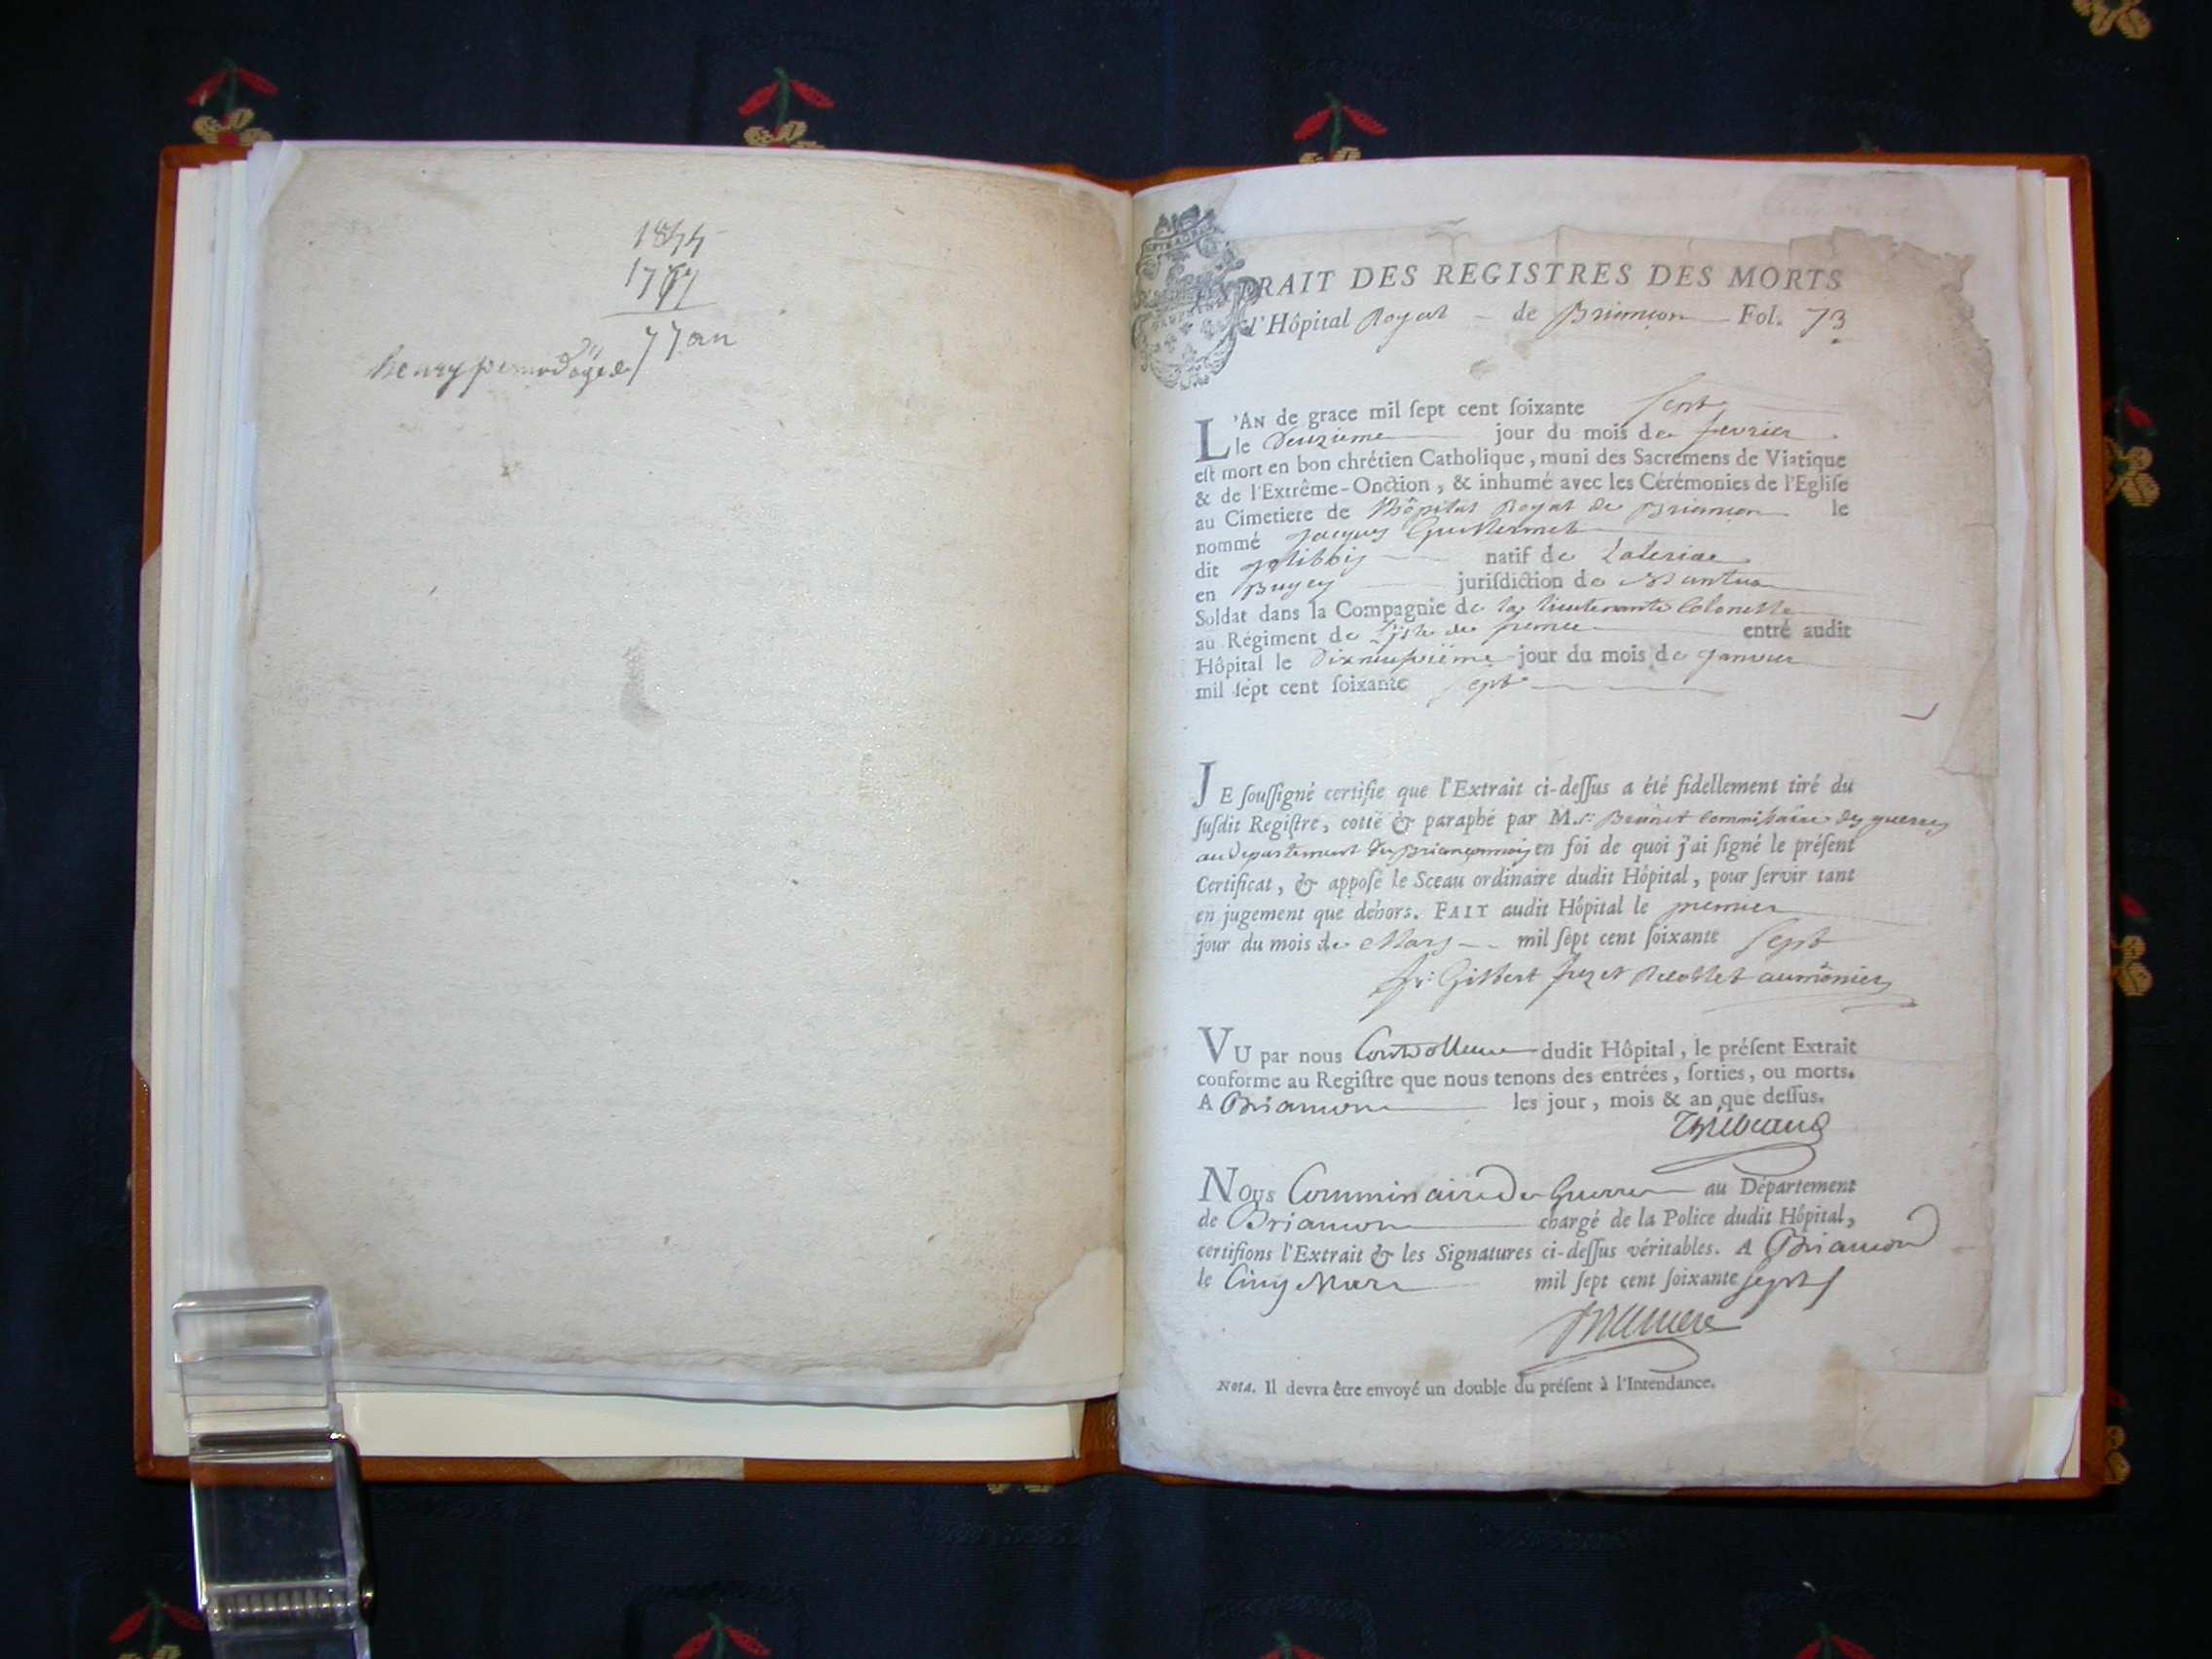 1844
17
77 an
henry âgé de
EXTRAIT DES REGISTRES DES MORTS
l'Hôpital Royal de Briançon Fol. 73
L'AN de grace mil ſept cent ſoixante ſept
le Deuxieme jour du mois de fevrier
eſt mort en bon chrétien Catholique, muni des Sacremens de Viatique
& de l'Extrême-Onction, & inhumé avec les Cérémonies de l'Egliſe
au Cimetiere de l'hôpital Royal de Briançon le
nommé Jacques Guillermet
dit natif de Laleriae
en Bugey juriſdiction de Nantua
Soldat dans la Compagnie de la lieutenante Colonelle
au Régiment de l'isle de france entré audit
Hôpital le Dixneufvieme jour du mois de janvier
mil ſept cent ſoixante sept
JE ſouſſigné certifie que l'Extrait ci-deſſus a été fidellement tiré du
ſuſdit Regiſtre, cotté & paraphé par M.r Brunet Commissaire des guerres
au departement du Briançonnois en foi de quoi j'ai ſigné le préſent
Certificat, & appoſé le Sceau ordinaire dudit Hôpital, pour ſervir tant
en jugement que dehors. FAIT audit Hôpital le premier
jour du mois de Mars mil ſept cent ſoixante ſept
fr: Gilbert Recollet aumônier
VU par nous Controlleur dudit Hôpital, le préſent Extrait
conforme au Regiſtre que nous tenons des entrées, ſorties, ou morts.
A Briancon les jour, mois & an que deſſus.
Thiebaud
NOUS Commissaire Des Guerres au Département
de Briancon chargé de la Police dudit Hôpital,
certifions l'Extrait & les Signatures ci-deſſus véritables. A Briancon
le Cinq Mars mil ſept cent ſoixante sept
NOTA. Il devra être envoyé un double du préſent à l'Intendance.